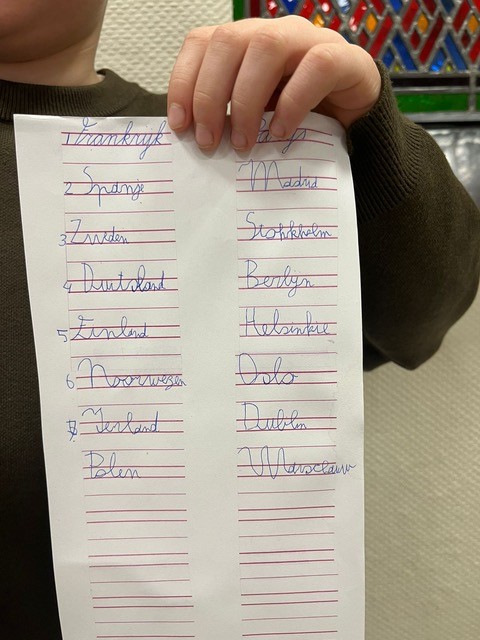 1 Frankrijk Parijs
2 Spanje Madrid
3 Zweden Stokkholm
4 Duitsland Berlijn
5 Finland Helsinkie
6 Noorwegen Oslo
7 Ierland Dublin
Polen Warschauw